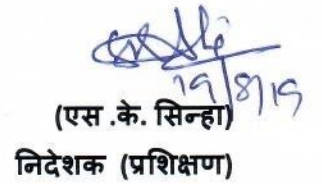 19/8/19
(एस .के. सिन्हा)
निदेशक (प्रशिक्षण)